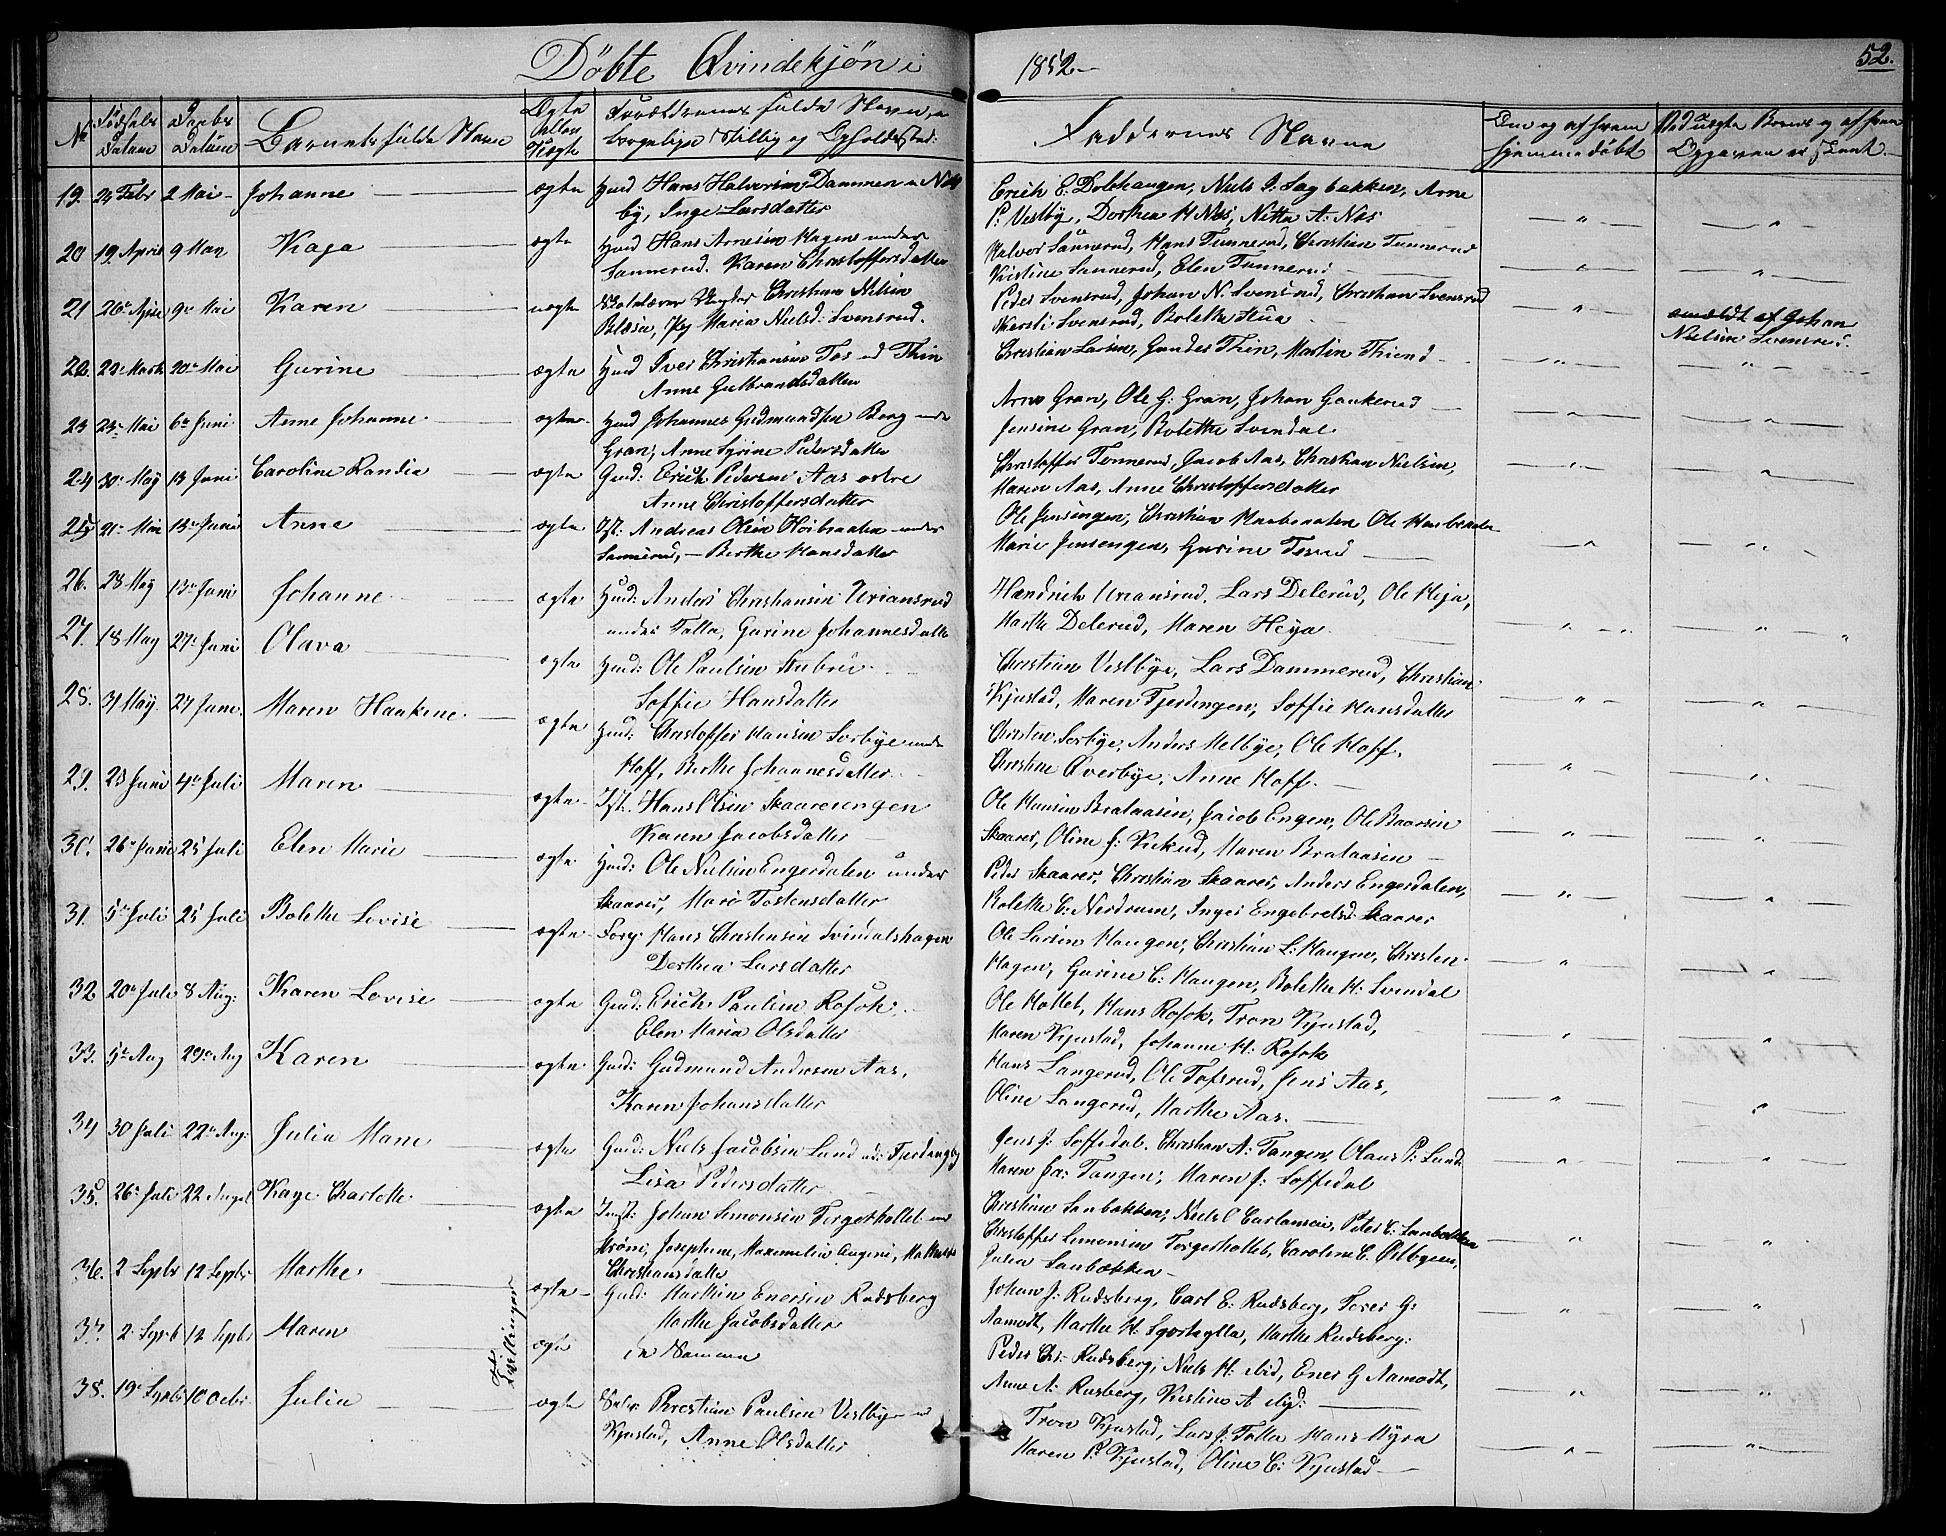 Döbte Qvindekjön i 1852.-
52.
No Födsels Datum Daabs Datum Barnets fulde Navn Ægte eller Uægte Forældrenes fulde Navne, borgelige Stilling og Opholdssted: Faddernes Navne Om og af hvem hjemmedöbt
19. 2 Mai - Johanne ægte Huusd Hans Halvorsen Dammen u Næs
by, Inge Larsdatter
Erich E. Dolehaugen, Niels J. Sagbakken, Arne
P. Vestby, Dorthea H Næs, Netta A. Næs
20 19. April 9 Mai Kaja ægte Huusd Hans Arnesen Hagen under
Sannerud. Karen Christoffersdatter
Halvor Sannerud, Hans Tunnerud, Christian Tunnerud
Kirstine Sannerud, Elen Tunnerud
21 26 April 9 Mai Karen uægte Christian Nilsen
Pig Maria Nielsd: Svensrud.
Peder Svensrud, Johan N. Svensrud, Christian Svensrud
Kersti Svensrud, Bolette Hua
anmeldt af Johan
Nielsen Svensrud.
22. 20 Mai Gurine ægte Huusd Iver Christiansen Fos ud Thin
Anne Gulbrandsdatter
Christian Larsen, Gunder Thin, Martin Thiend
23 23 Mai 6 Juni Anne Johanne ægte Huusd Johannes Gudmundsen Berg under
Gran, Anne Syrine Pedersdatter
Arne Gran, Ole G. Gran, Johan Gaukerud
Jensine Gran, Bolette Svendal
24 30 May 13 Juni Caroline Randia ægte Gaard: Erich Pedersen Aas östre
Anne Christoffersdatter
Christoffer Tunnerud, Jacob Aas, Christian Nielsen,
Maren Aas, Anne Christoffersdatter
25 21 Mai 13 Juni Anne ægte Inst: Andreas Olsen Höibraaten under
Sannerud, - Berthe Hansdatter
Ole Jensengen, Christian Haabraaten Ole Haabraaten
Marie Jensengen, Gurine Fosrud
26. 28 May 13 Juni Johanne ægte Huusd: Anders Christiansen Uriansrud
under Talla, Gurine Johannesdatter
Hændrich Uriansrud, Lars Delerud, Ole Heja,
Marthe Delerud, Maren Heya.
27. 18 May 27 Juni Olava ægte Huusd: Ole Paulsen Stubrud
Soffie Hansdatter
Christian Vestbye, Lars Dammerud, Christian
Kjustad, Maren Fjerdingen, Soffie Hansdatter
28. 31 May 27 Juni Maren Haakine ægte Huusd: Christoffer Hansen Sorbye under
Hoff, Berthe Johannesdatter
Christen Sorbye, Anders Melbye, Ole Hoff,
Christine Överbye, Anne Hoff.
29. 23 Juni 4 Juli Maren ægte Inst. Hans Olsen Skaarerengen
Karen Jacobsdatter
Ole Hansen Brataasen, Jacob Engen, Ole Baarsen
Skaarer, Oline J. Vickud, Maren Brataasen
30. 26 Juni 25 Juli Elen Marie ægte Huusd: Ole Nielsen Engerdalen under
Skaarer, Mari Tostensdatter
Peder Skaarer, Christian Skaarer, Anders Engerdalen,
Bolette C. Nerdrum, Inger Engebretsd. Skaarer
31. 5 Juli 25 Juli Bolette Lovise ægte Forp: Hans Christensen Svindalshagen
Dorthea Larsdatter
Ole Larsen Haugen, Christian L. Haugen, Christen
Hagen, Gurine C. Haugen, Bolette H. Svendal
32 20 Juli 8 Aug: Karen Lovise ægte Gaard: Erich Paulsen Rosok,
Elen Maria Olsdatter
Ole Hollet, Hans Rosok, Tron Kjustad,
Karen Kjustad, Johanne H. Rosok
33. 5 Aug 29 Aug Karen ægte Gaard: Gudmund Andersen Aas,
Karen Johansdatter
Hans Langerud, Ole Tofsrud, Jens Aas,
Oline Langerud, Marthe Aas.
34 30 Juli 22 Aug: Julia Marie ægte Gaard: Niels Jacobsen Lund ud: Fjerdingby
Lisa Pedersdatter
Jens J. Soffedal, Christian A: Tangen, Olaus P. Lund
Maren Ja: Tangen, Maren J. Soffedal
35. 26 Juli 22 Augst Kaye Charlotte ægte Inst: Johan Simonsen Torgerhollet under
Ströms, Josephine, Maximelia Augine,
Christiansdatter
Christian Sanbækken, Niels C Carlansen, Peter C. Sanbækken
Christoffer Simonsen Torgerhollet, Caroline C. Östbyeen,
Julia Sanbækken
36. 2 Septbr 12 Septbr Marthe ægte Gaard: Martin Enersen Rudsberg
Marthe Jacobsdatter
Johan J. Rudsberg, Carl E. Rudsberg, Tover G.
Aamodt, Marthe H. Marthe Rudsberg.
37. 2 Septb 12 Septb Maren Et Par Tvillinger ægte de Samme
Peder Chr. Rudsberg, Niels H. ibid, Ener G Aamodt,
Anne A. Rusberg, Kirstine A ibid.
38. 19 Septbr 10 Octbr Julia ægte Selv: Christian Paulsen Vestbye ud
Kjustad, Anne Olsdatter
Tron Kjustad, Lars J. Talla Hans Myra
Maren P. Kjustad, Oline C. Kjustad